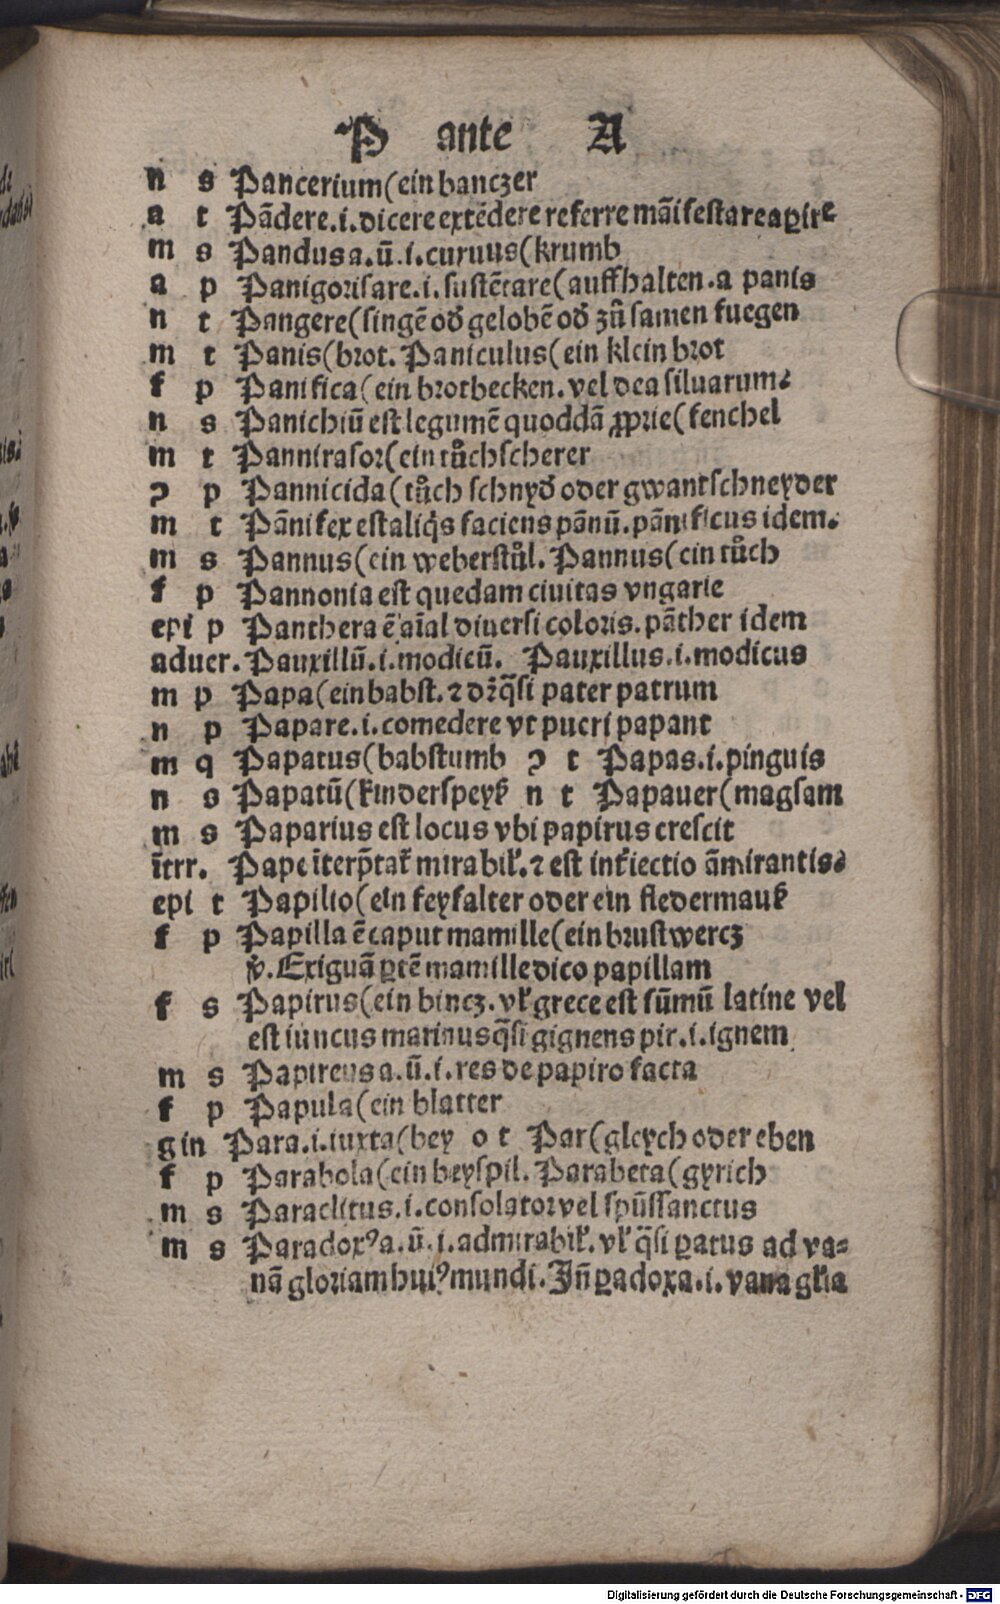 P ante A
n s Pancerium(ein banczer
a t Pãdere.i.dicere extẽdere referre mãifestare aꝑire
m s Pandus a.ũ.i.curuus(krumb
a p Panigorisare.i.sustẽtare(auffhalten.a panis
n t Pangere(singẽ oď gelobẽ oď zů samen fuegen
m t Panis(brot. Paniculus(ein klein brot
f p Panifica(ein brotbecken.vel dea siluarum.
n s Panichiũ est legumẽ quoddã ꝓprie(fenchel
m t Pannirasor(ein tůchscherer
ꝯ p Pannicida(tůch schnyď oder gwantschneyder
m t Pãnifex est aliq̃s faciens pãnũ.pãnificus idem.
m s Pannus(ein weberstůl. Pannus(ein tůch
f p Pannonia est quedam ciuitas vngarie
epi p Panthera ẽ aĩal diuersi coloris.pãther idem
aduer. Pauxillũ.i.modicũ. Pauxillus.i.modicus
m p Papa(ein babst.⁊ dꝛ q̃si pater patrum
n p Papare.i.comedere vt pueri papant
m q Papatus(babstumb ꝯ t Papas.i.pinguis
n s Papatũ(kinderspeyß n t Papauer(magsam
m s Paparius est locus vbi papirus crescit
ĩtrr. Pape ĩterp̃tať mirabiľ.⁊ est inťiectio ãmirantis.
epi t Papilio(ein feyfalter oder ein fledermauß
f p Papilla ẽ caput mamille(ein brustwercz
ṽ. Exiguã ꝑtẽ mamille dico papillam
f s Papirus(ein bincz.vľ grece est fũmũ latine vel
est iuncus marinus q̃si gignens pir.i.ignem
m s Papireus a.ũ.i.res de papiro facta
f p Papula(ein blatter
gin Para.i.iuxta(bey o t Par(gleych oder eben
f p Parabola(ein beyspil. Parabeta(gyrich
m s Paraclitus.i.consolator vel spũssanctus
m s Paradoxꝰ a.ũ.i.admirabiľ.vľ q̃si ꝑatus ad va-
nã gloriam huiꝰ mundi.Jñ ꝑadoxa.i.vana gľia
Digitalisierung gefördert durch die Deutsche Forschungsgemeinschaft - DFG